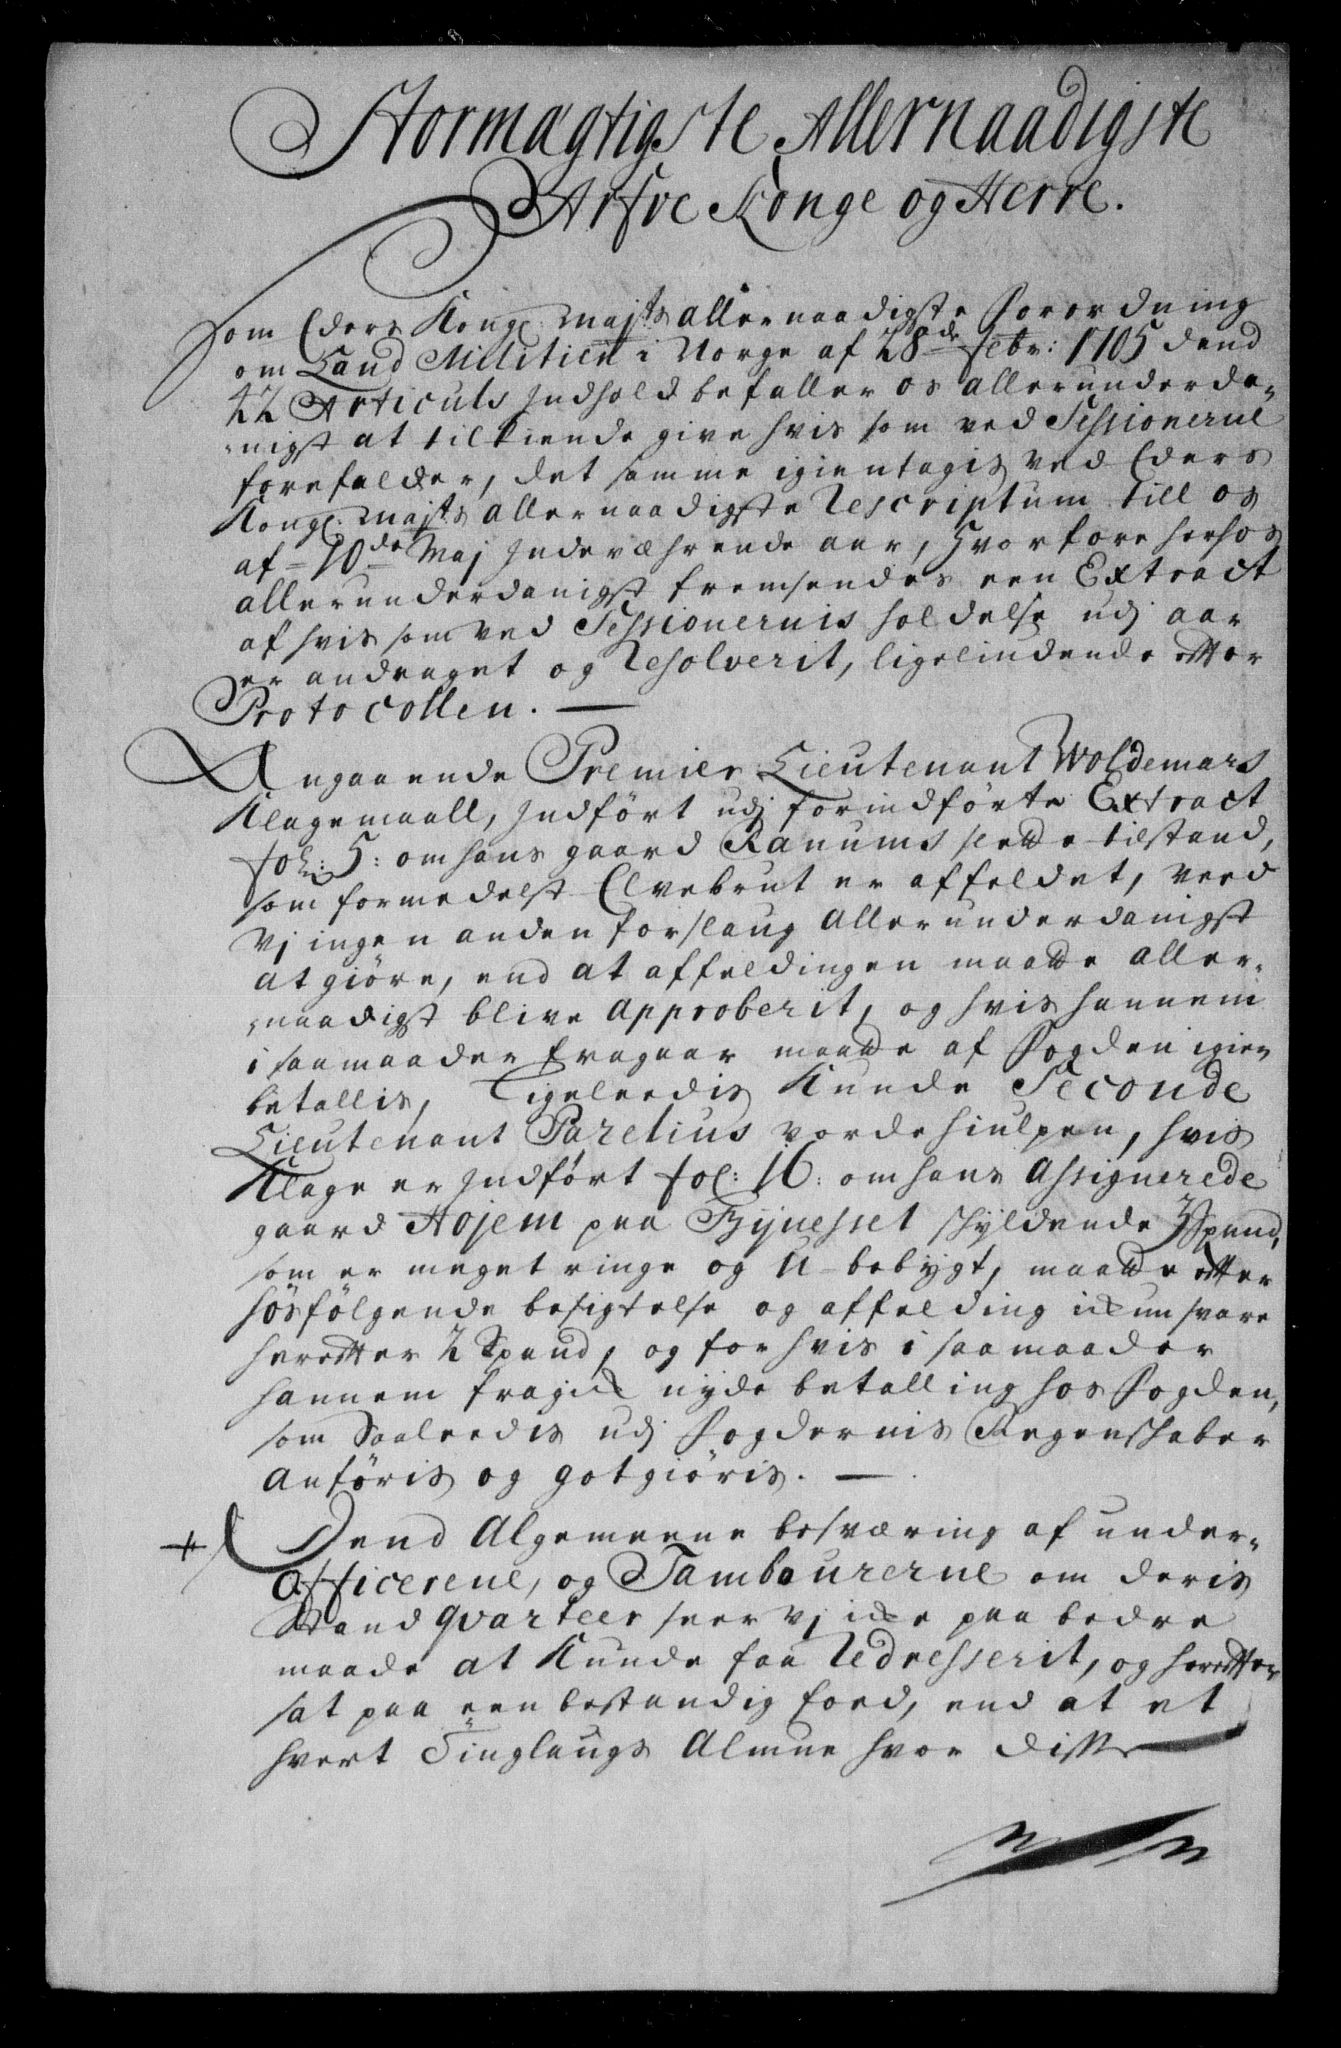 Stormægtigste Allernaadigste
Arfve Konge og Herre.
Som Eders Kongl: Majts allernaadigste Forordning
om Land Militien i Norge af 28de Febr: 1705 dend
22 Articuls Indhold befaller os allerunderda-
nigst at tilkiende give hvis som ved Sessionerne
forefalder, det samme igientagis ved Eders
Kongl. Majts allernaadigste Rescriptum till os
af 10de Maj Indeværende aar, hvorfore herhos
allerunderdanigst fremsendes een Extract
af hvis som ved Sessionernis holdelse udj aar
er andraget og Resolverit, ligelindende etter
Protocollen. —
Angaaende Premier Lieutenant Woldemars
Klagemaall, Indført udj forindførte Extract
fol: 5: om hans gaard Ranums slette tilstand,
som formedelst Elvebrut er affeldet, veed
vj ingen anden forslaug allerunderdanigst
at giøre, end at affeldingen maatte aller-
naadigst blive approberit, og hvis hannem
i saamaader fragaar maatte af Fogden igien
betallis, Ligeleedis kunde Seconde
Lieutenant Parelius vorde hiulpen, hvis
Klage er Indført fol: 16: om hans assignerede
gaard Hojem paa Bynesset skyldende 3 Spand,
som er meget ringe og U-bebygt, maatte etter
hosfølgende besigtelse og affelding ickun svare
heretter 2 Spand, og for hvis i saamaader
hannem fragick nyde betalling hos Fogden,
som Saaleedis udj Fogdernis Regenskaber
anføris og gotgiøris. —
Dend Algemeene besværing af under-
officerene, og Tambourerne om deris
Stand qvarteer seer vj icke paa bedre
maade at kunde faa Redresserit, og heretter
sat paa een bestandig foed, end at et
hvert Tinglaugs Almue hvor disse